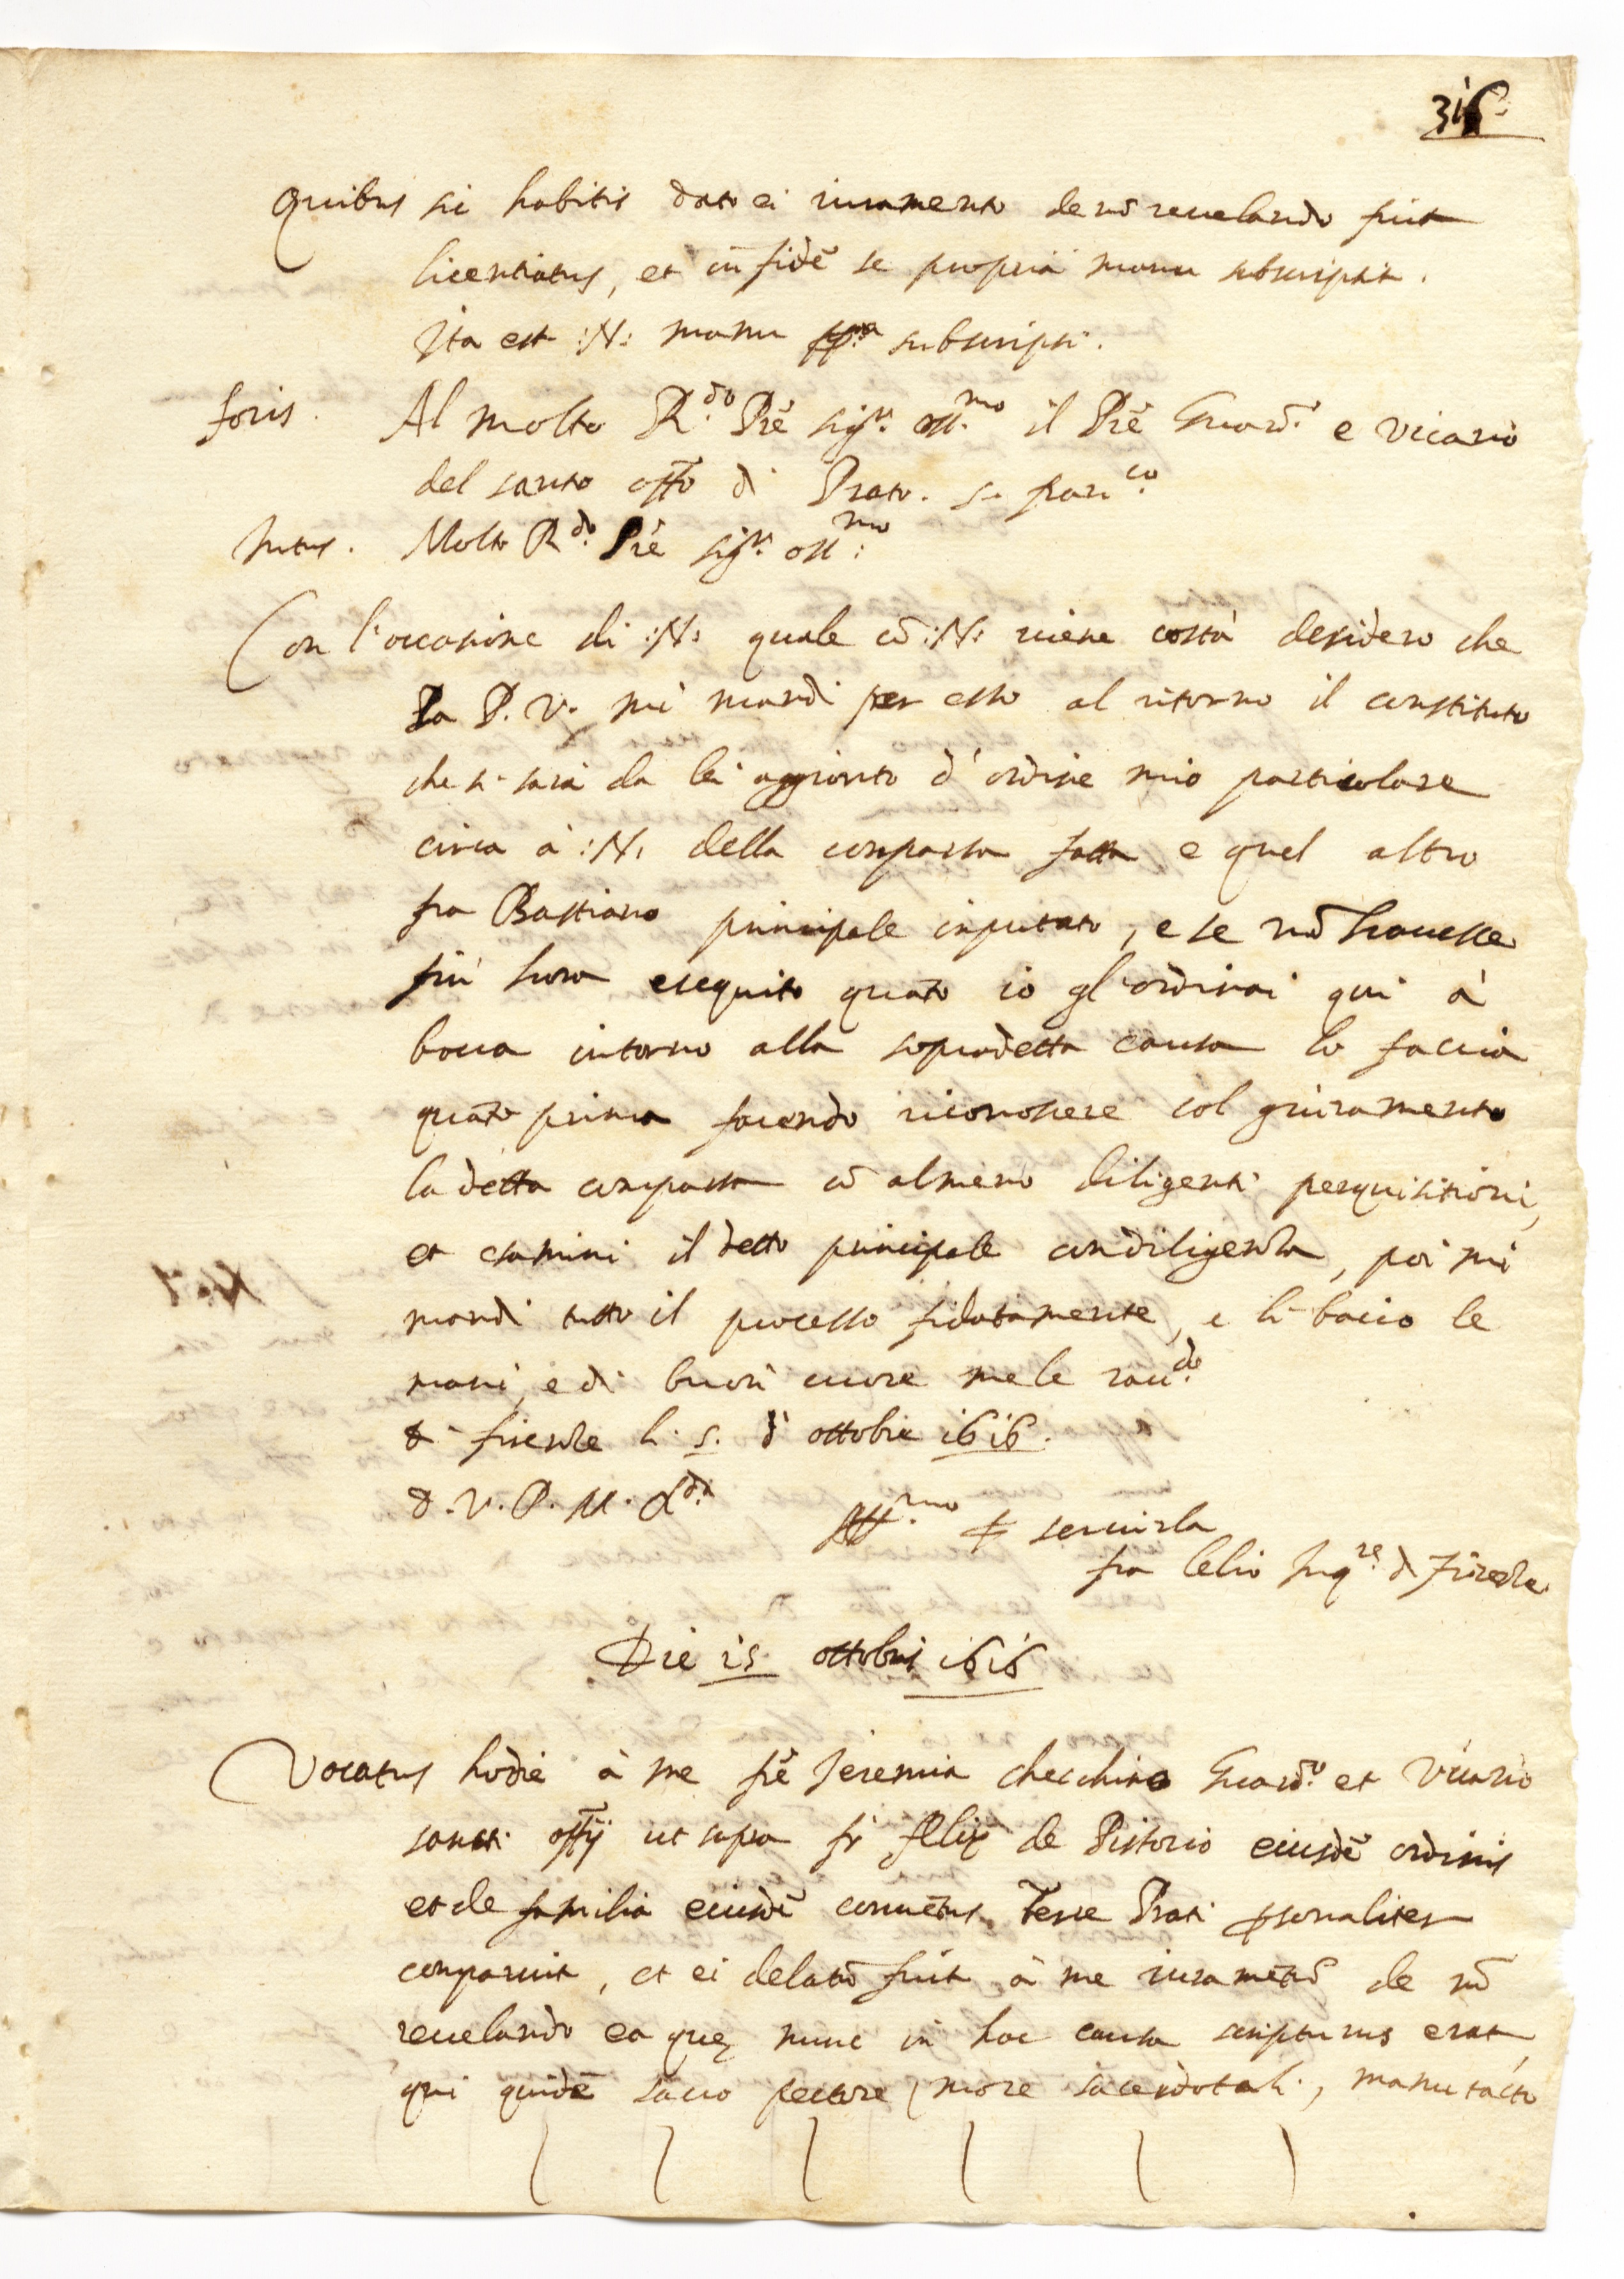 316
Quibus sic habitis dato ei iuramento de nō reuelando fuit
licentiatus, et in fidē se propria manu subscripsit.
Ita est :N: manu ppa subscripsi.
foris. Al molto R.do Prē sigr. oss.mo il Prē Guard.o e vicario
del santo offo di Prato. S. fran.co
Intus. Molto R.do Prē sigr. oss.mo
Con l'occasione di :N: quale cō :N: viene costà desidero che
la P. V. mi mandi per esso al ritorno il constituto
che si sarà da lei aggionto d'ordine mio particolare
circa à :N: della comparsa fatta e quel altro
fra Bastiano principale inputato, e se nō hauesse
fin' hora esequito quāto io gl'ordinai qui à
bocca intorno alla sopradetta causa lo faccia
quāto prima facendo riconoscere col giuramento
la detta comparsa cō almeno diligenti perquisitioni,
et esamini il detto principale con diligenza, poi mi
mandi tutto il processo fidatamente, e li bacio le
mani, e di buon cuore me le racc.do
di firenze li .5. d' ottobre 1616.
D. V. P. M. R.da
Aff.mo p seruirla
fra Lelio Inq.re di Firenze
Die 15 ottobris 1616
Vocatus hodie à me frē Jeremia checchino Guard.o et Vicario
sancti offij ut supra fr felix de Pistorio eiusdē ordinis
et de familia eiusdē conuētus Terre Prati psonaliter
comparuit, et ei delatū fuit à me iuramētū de nō
reuelando ea quę nunc in hac causa scripturus erat
qui quidē sacro pectore more sacerdotali, manu tacto